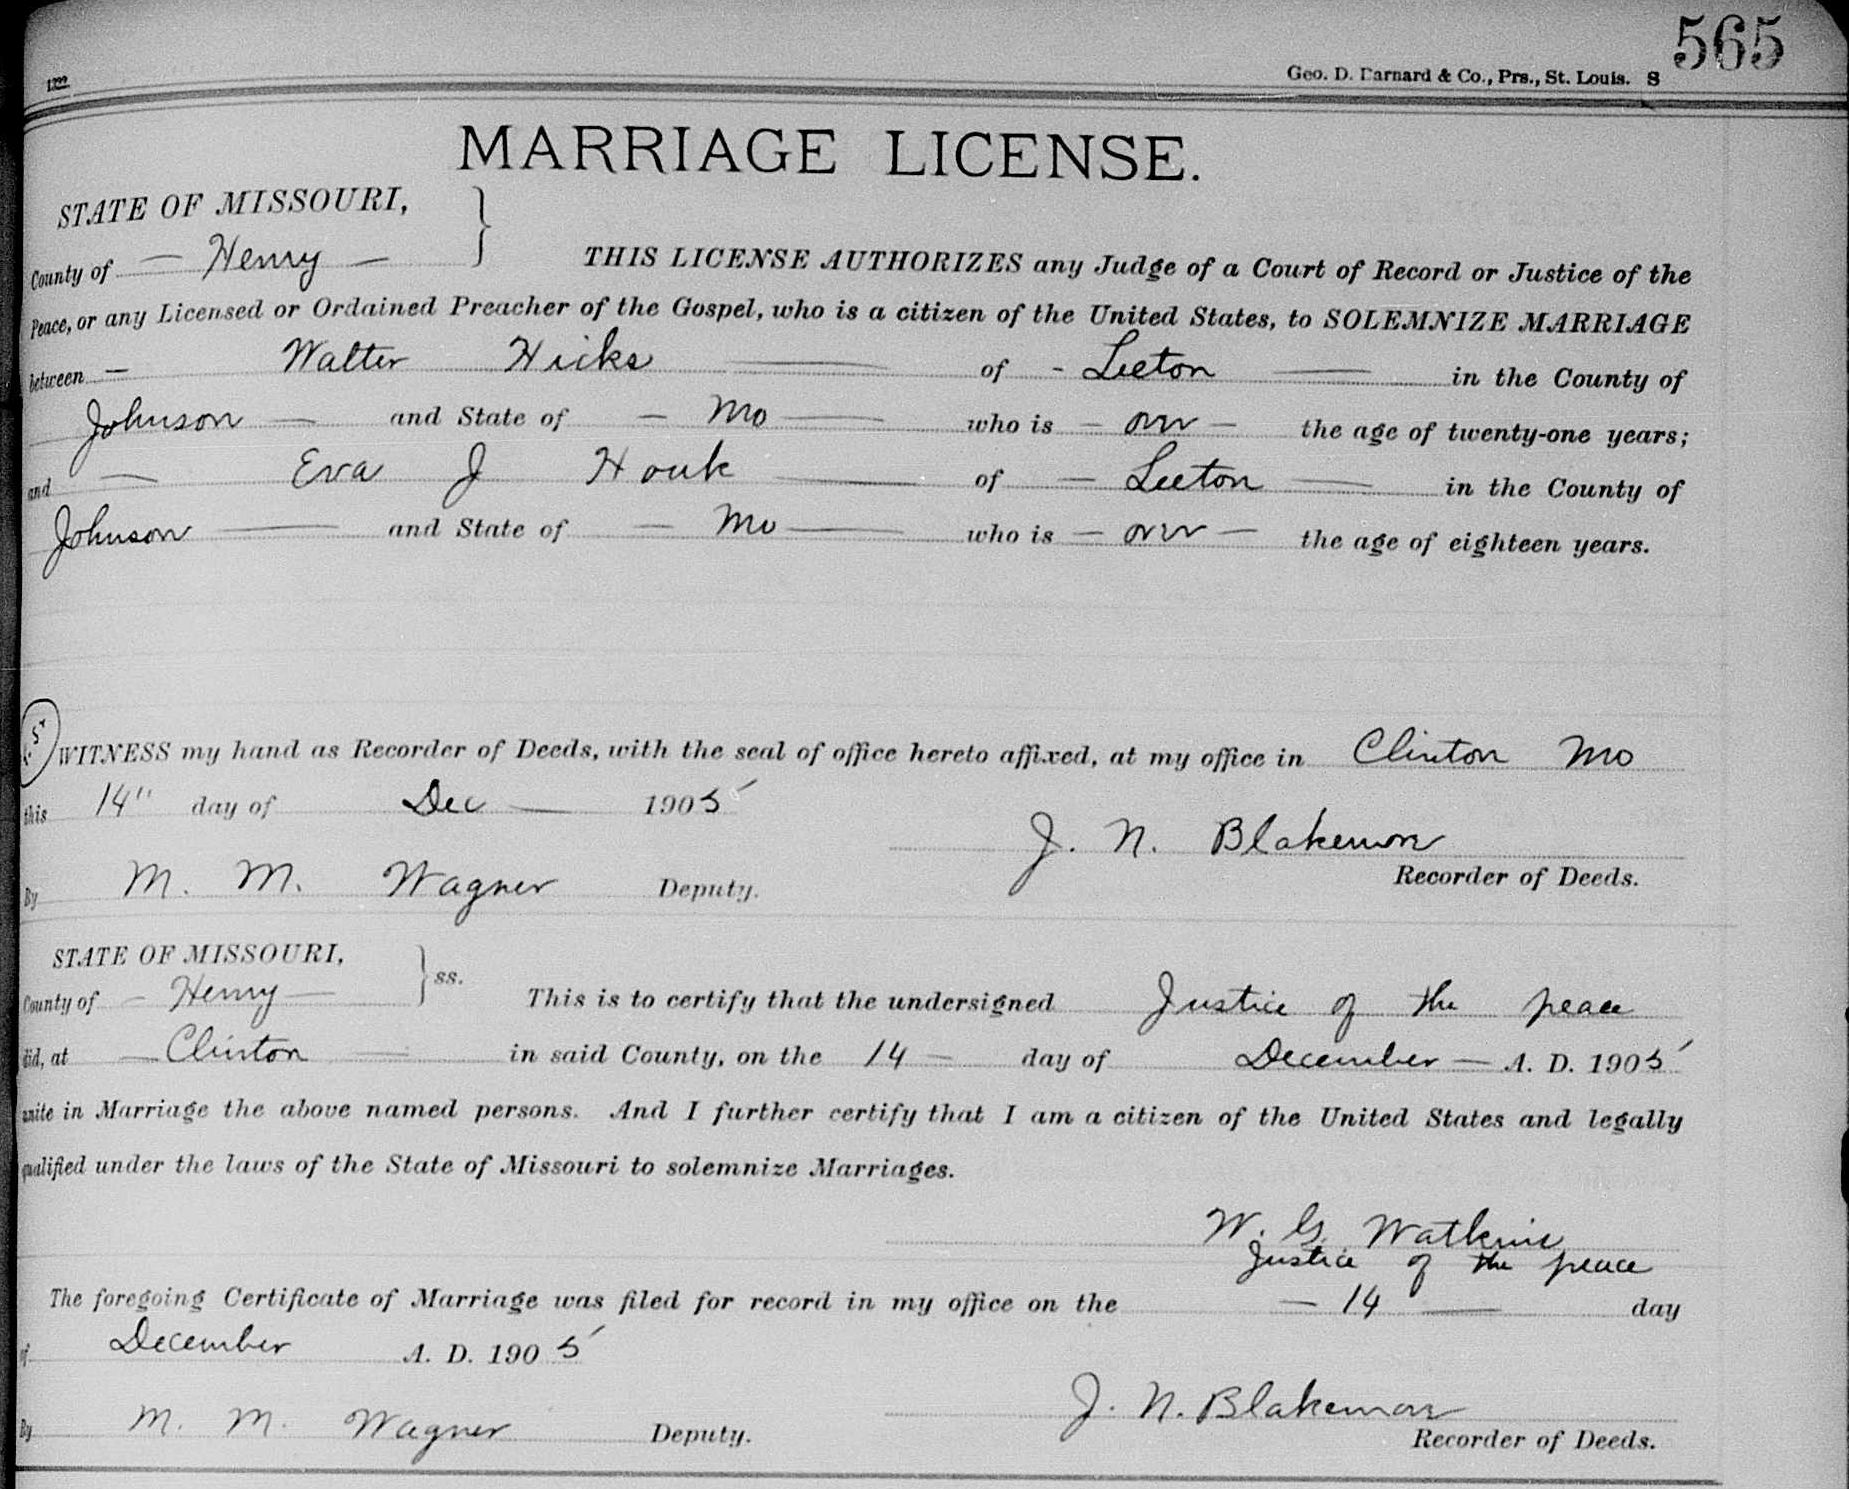 565
Geo. D. Barnard & Co., Prs., St. Louis. S
MARRIAGE LICENSE.
STATE OF MISSOURI,
County of — Henry — THIS LICENSE AUTHORIZES any Judge of a Court of Record or Justice of the
Peace, or any Licensed or Ordained Preacher of the Gospel, who is a citizen of the United States, to SOLEMNIZE MARRIAGE
between — Walter Hicks — of - Leeton — in the County of
Johnson — and State of — Mo — who is — over — the age of twenty-one years;
and — Eva J Houk — of — Leeton — in the County of
Johnson — and State of — Mo — who is — over — the age of eighteen years.
WITNESS my hand as Recorder of Deeds, with the seal of office hereto affixed, at my office in Clinton Mo
this 14" day of Dec — 1905
J. N. Blakemore
Recorder of Deeds.
By M. M. Wagner Deputy.
STATE OF MISSOURI,
County of — Henry — } ss. This is to certify that the undersigned Justice of the peace
did, at — Clinton — in said County, on the 14 — day of December — A. D. 1905
unite in Marriage the above named persons. And I further certify that I am a citizen of the United States and legally
qualified under the laws of the State of Missouri to solemnize Marriages.
W. G. Watkins
Justice of the peace
The foregoing Certificate of Marriage was filed for record in my office on the — 14 — day
of December A. D. 1905
J. N. Blakemore
By M. M. Wagner Deputy. Recorder of Deeds.